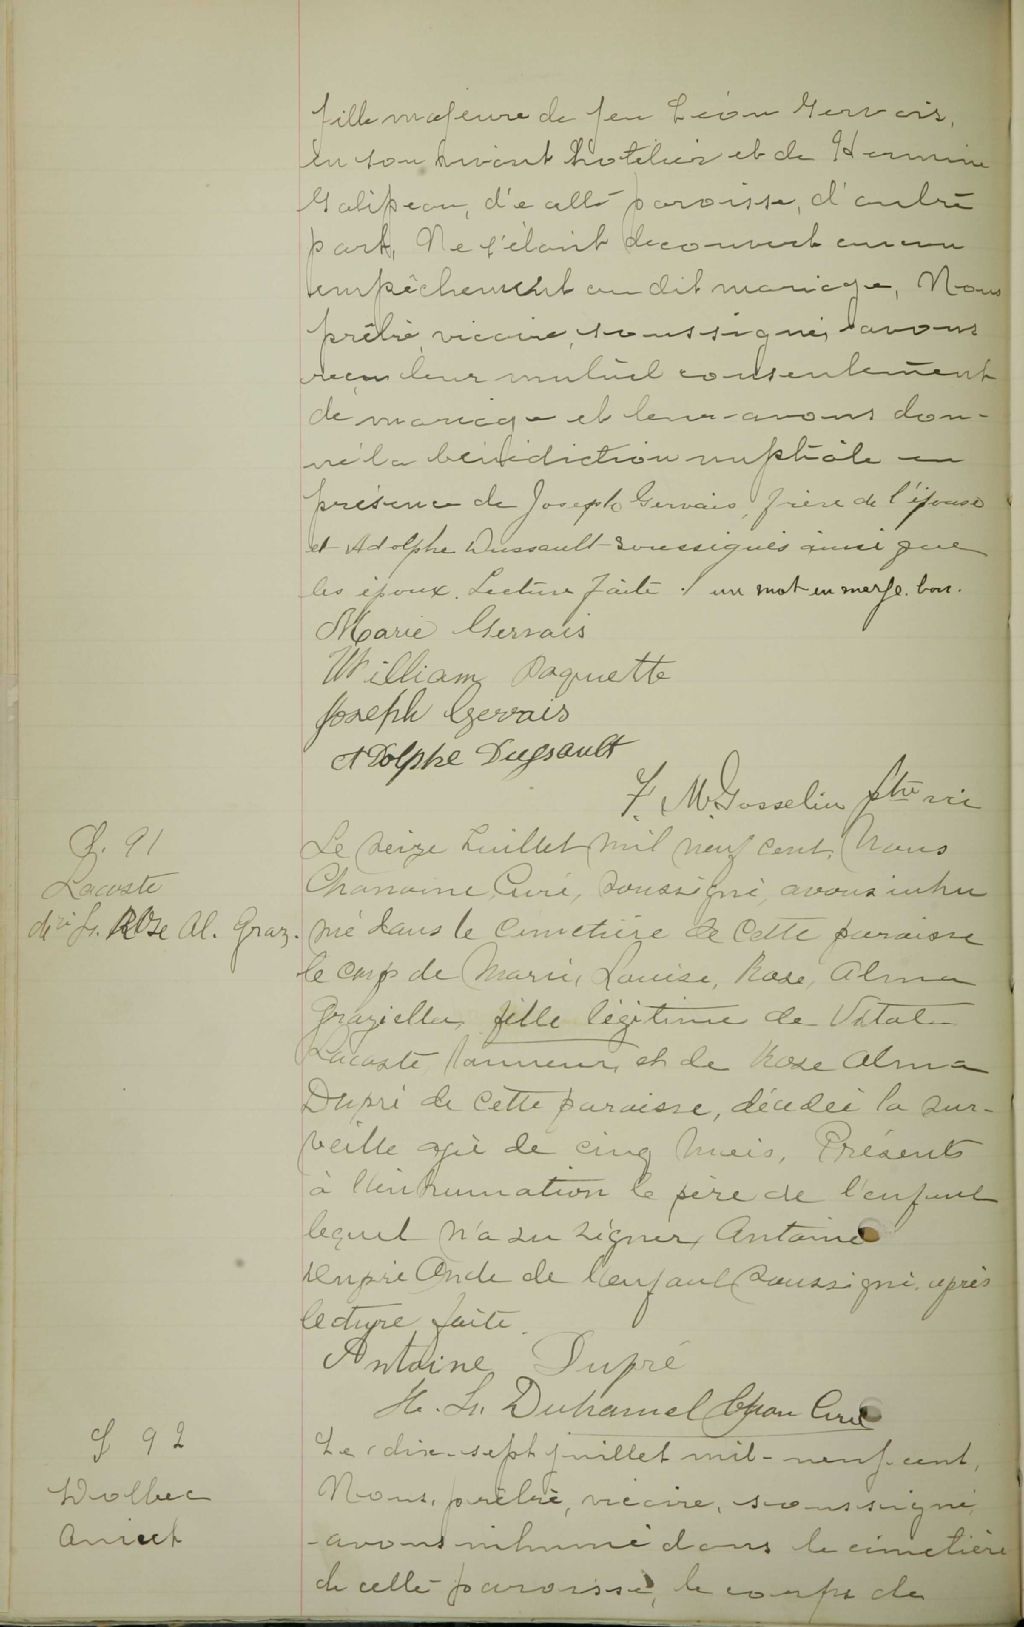 fille majeure de feu Léon Gervais,
en son vivant hotelier et de Hermine
Galipeau, de cette paroisse, d'autre
part, Ne s'étant decouvert aucun
empêchement au dit mariage, Nous
prêtre, vicaire, soussigné, avons
reçu leur mutuel consentement
de mariage et leur avons don-
né la bénédiction nuptiale en
présence de Joseph Gervais, frère de l'épouse
et Adolphe Dussault soussignés ainsi que
les époux. Lecture faite. un mot en marge. bon.
Marie Gervais
William Paquette
Joseph Gervais
Adolphe Dussault
F. M. Gosselin ptre vic
S. 91
Lacoste
Ls. Rose Al. Graz.
Le seize Juillet mil neuf cent, Nous
Chanoine, Curé, soussigné, avons inhu
mé dans le Cimetière de Cette paroisse
le corp de Marie, Louise, Rose, Alma
Graziella, fille légitime de Vital
Lacoste, tanneur, et de Rose Alma
Dupré de Cette paroisse, décédée la sur-
veille agé de cinq Mois, Présents
à l'inhumation le père de l'enfant
lequel n'a su signer, Antoine
Dupré Oncle de l'enfant soussigné après
lecture faite.
Antoine Dupré
H. Ls. Duhamel Chan Curé
S 92
Wolbec
Anicet
Le dix-sept juillet mil-neuf-cent,
Nous, prêtre, vicaire, soussigné,
avons inhumé dans le cimetière
de cette paroisse, le corps de